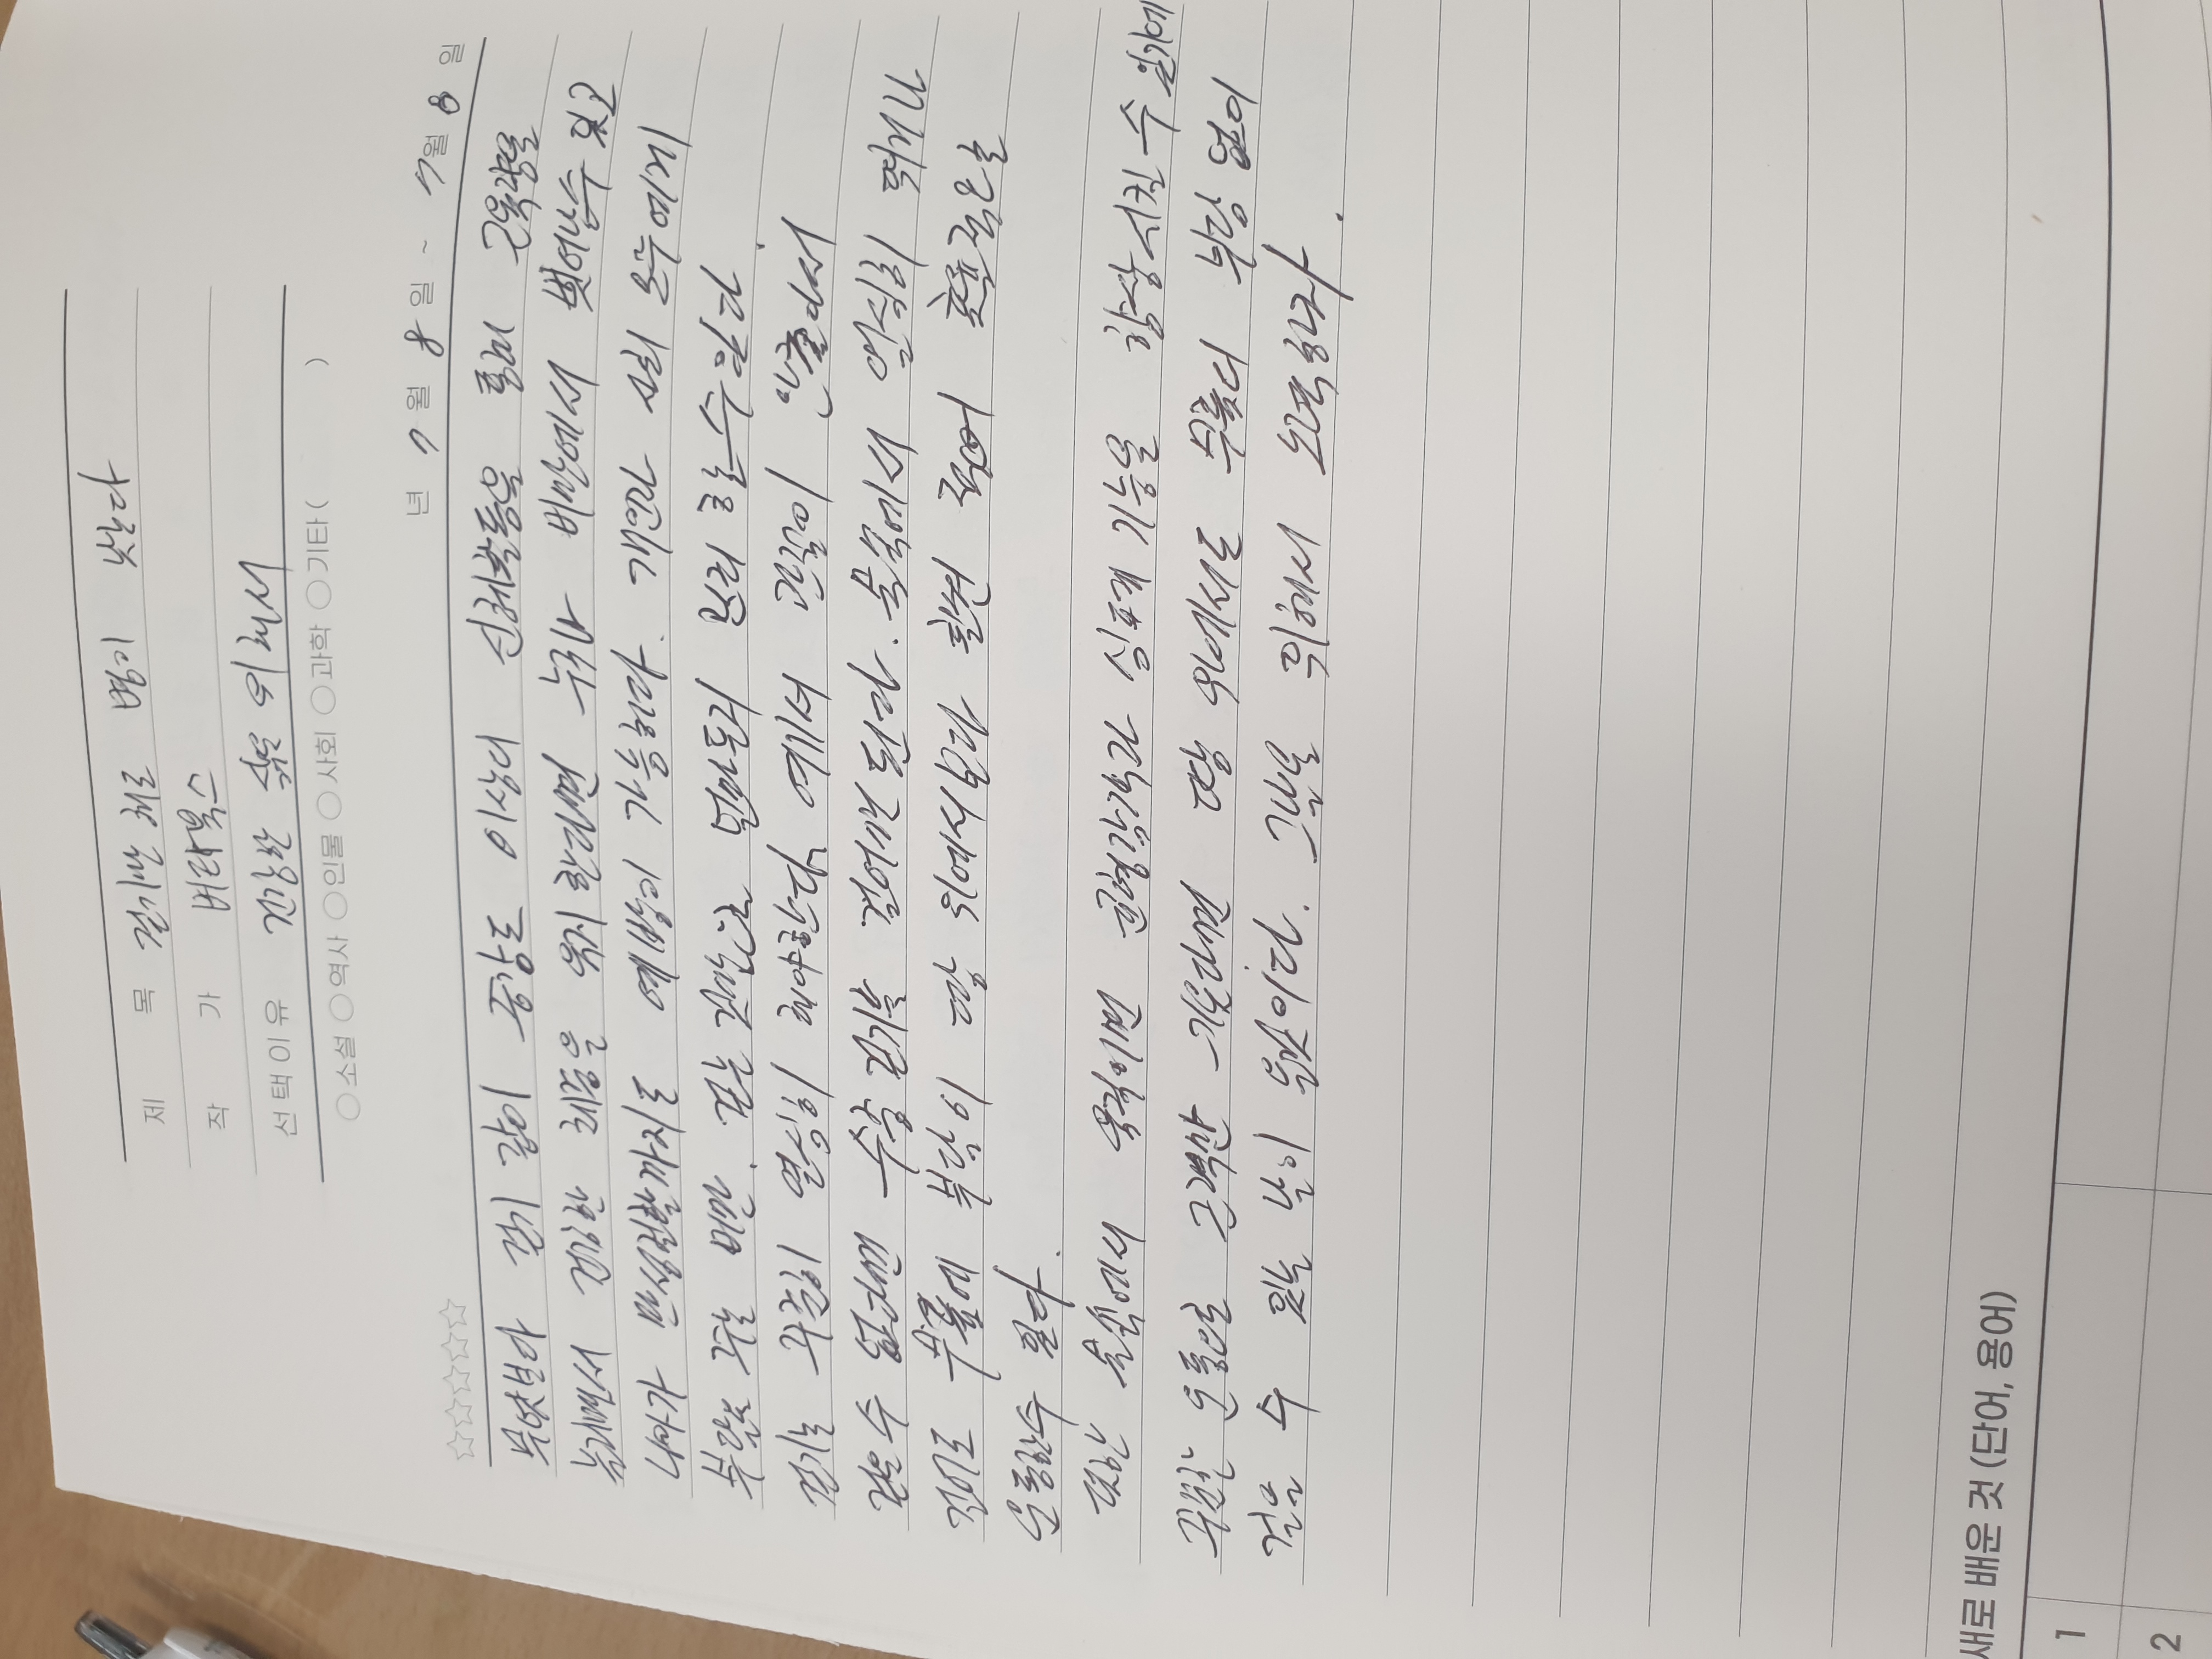 제 목 걷기만 해도 병이 낫는다
작 가 비타북스
선택이유 건강한 삶을 위해서
○소설 ○역사 ○인물 ○사회 ○과학 ○기타 ( )
년 7월 8일 ~ 7월 8일
☆☆☆☆☆
무엇보다 걷기 같이 중강도 이상의 신체활동을 통해 근육량을
늘리면서 건강한 체중을 유지한다면 누구나 비만에서 벗어날수 있고
나아가 만성질환까지도 예방이 가능하다. 개인과 사회 모두에게
부담을 주는 비만. 걷는 것만으로 얼마든지 관리 할 수 있다.
걷기는 꾸준히 열심히 해야한다. 여기서 관절이 안좋아서
걷을 수 없다면 수중 걷기를 걸으면 된다. 물속에서 열심히 뛰거나
걸어도 무릎에 부담이 땅 위에서보다 훨씬 적어 효율적으로
운동할수 있다.
또한 물속에서 움직이면 균형감각과 심폐계 기능을 향상시킬 수 있기에
꾸준한 운동으로 근력만 기른다면 땅 위에서도 무릎의 부담 없이
걸을 수 있는 날이 올것이다. 그날을 위해서 노력하자.
새로 배운 것 (단어, 용어)
1
2